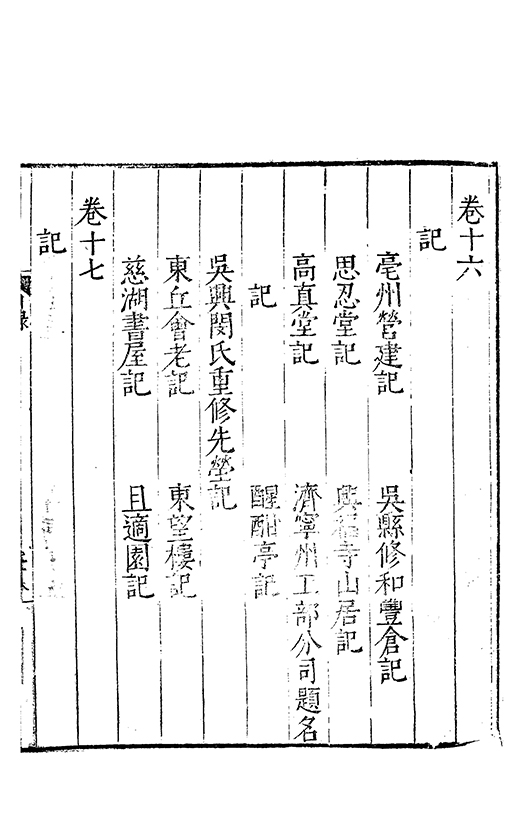 卷十六
記
亳州營建記　吳縣修和豐倉記
思忍堂記　興福寺山居記
高真堂記　濟寧州工部分司題名
記　醒酣亭記
吳興閔氏重修先塋記
東丘會老記　東望樓記
慈湖書屋記　且適園記
卷十七
記